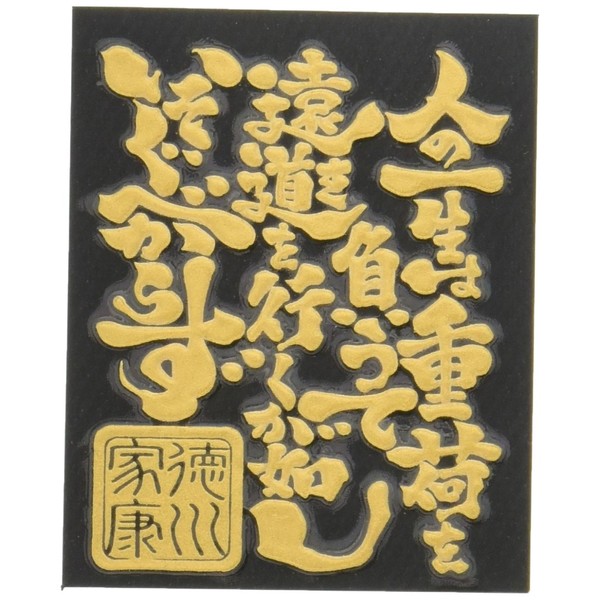 人の一生は重荷を
負うて
遠き道を行くが如し
いそぐべからず
徳川
家康